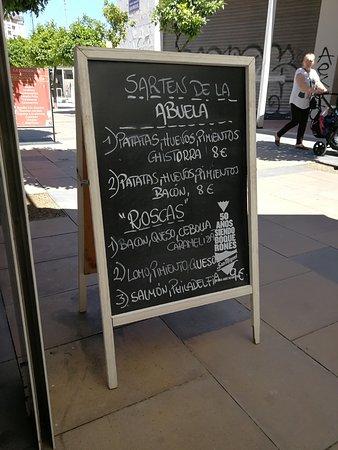 SARTEN DE LA
ABUELA
1) PATATAS, HUEVOS, PIMIENTOS
CHISTORRA 8€
2) PATATAS, HUEVOS, PIMIENTOS
BACÓN, 8€
"ROSCAS"
1) BACON, QUESO, CEBOLLA
CARAMELIZA
2) LOMO, PIMIENTO QUESO
3) SALMÓN, PHILADELFIA 9€
50
AÑOS
SIENDO
BOQUE
RONES